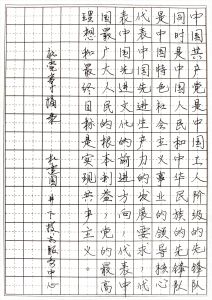 中国共产党是中国工人阶级的先锋队
同时是中国人民和中华民族的先锋队
是中国特色社会主义事业的领导核心，
代表中国先进生产力的发展要求，代
表中国先进文化的前进方向，代表中
国最广大人民的根本利益。党的最高
理想和最终目标是实现共产主义。
党章 摘录
井下技术服务中心